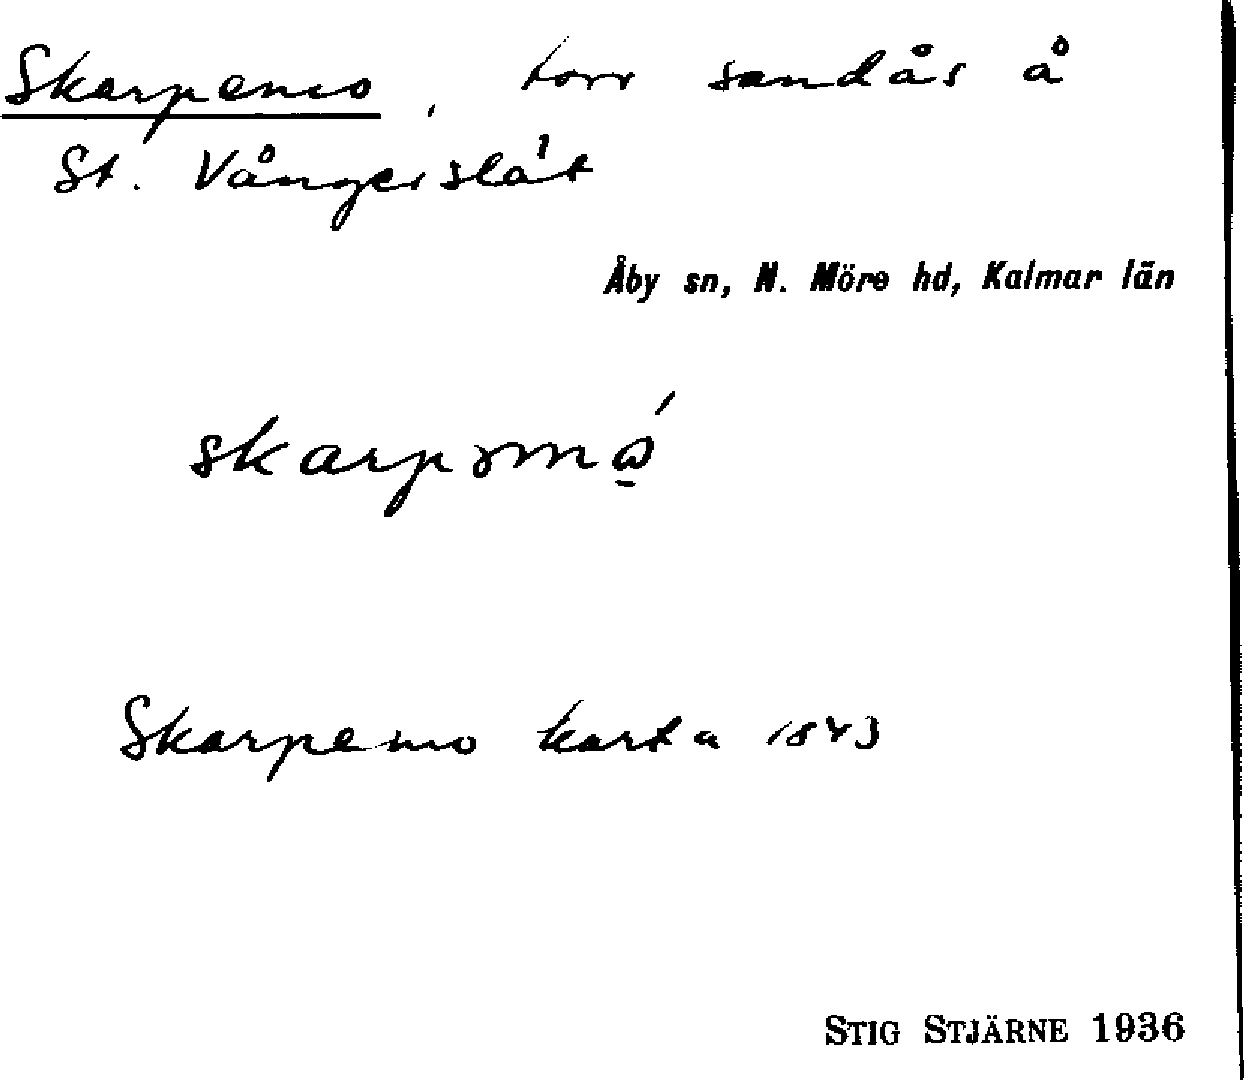 Skarpemo, torr sandås å
St. Vångerslät
Åby sn, N. Möre hd, Kalmar län
Skarpemo karta 1843
STIG STJÄRNE 1936